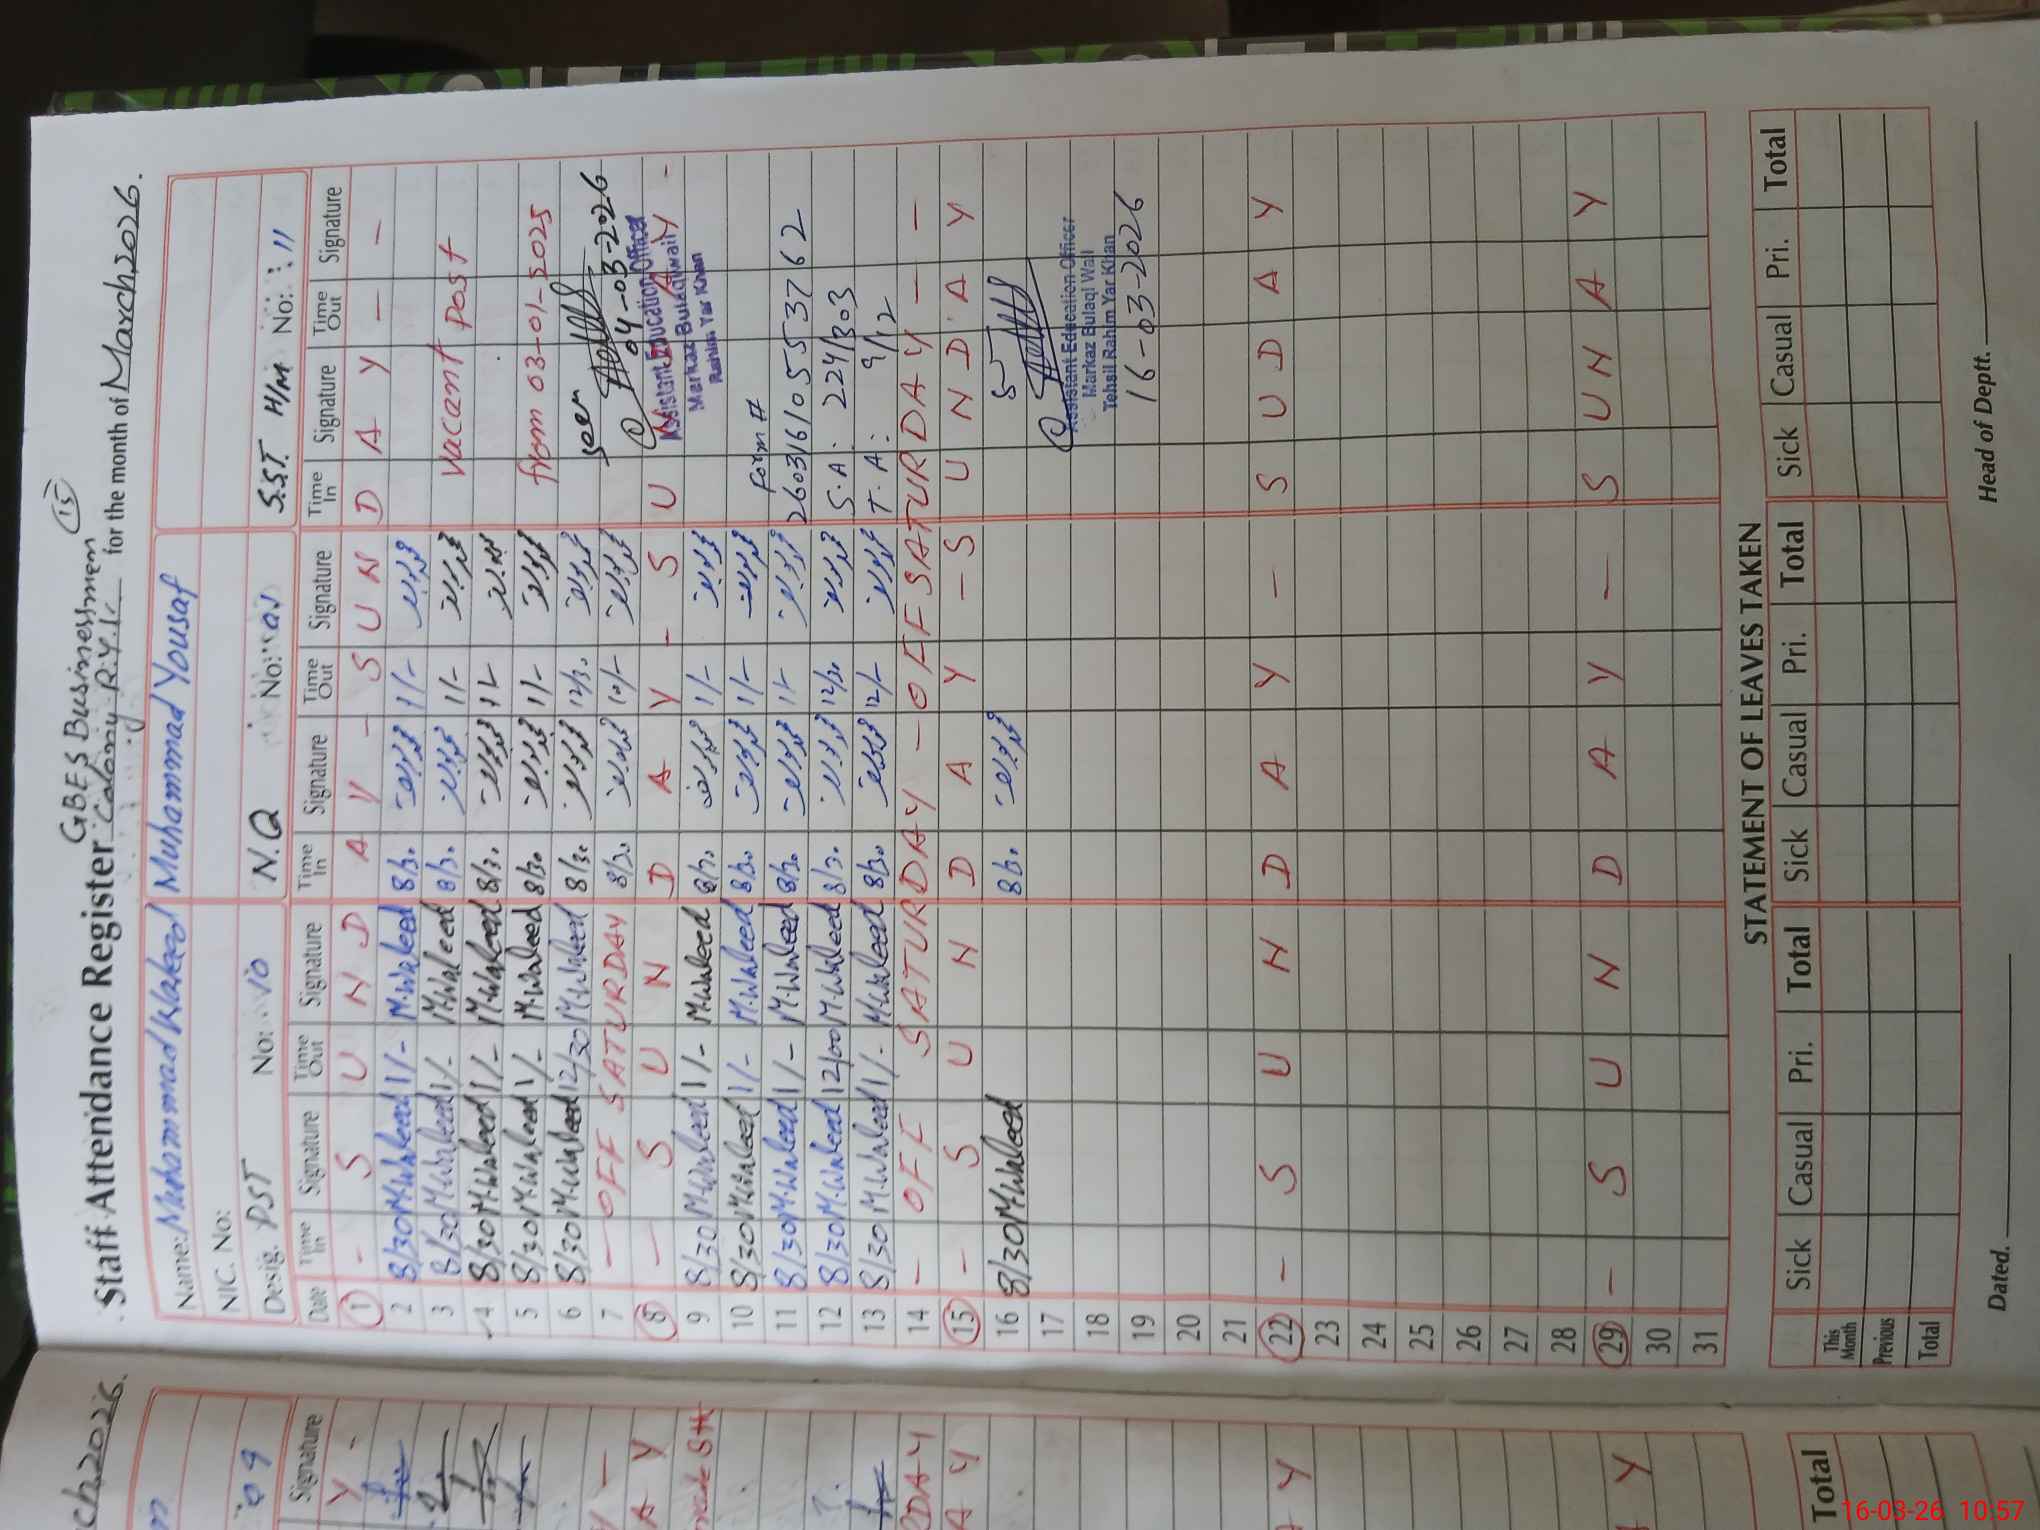 GBES Businessmen (15)
Staff Attendance Register Colony R.Y.K for the month of March 2026.
Name: Muhammad Waleed Muhammad Yousaf
NIC. No:
Desig. PST No: 10 N.Q No: S.S.T H/M No: 11
Date Time In Signature Time Out Signature Time In Signature Time Out Signature Time In Signature Time Out Signature
1 - S U N D A Y - S U N D A Y - -
2 8/30 M.Waleed 1/- M.Waleed 8/30 1/-
3 8/30 M.Waleed 1/- M.Waleed 8/30 1/- Vacant Post
4 8/30 M.Waleed 1/- M.Waleed 8/30 1/-
5 8/30 M.Waleed 1/- M.Waleed 8/30 1/- from 03-01-2025
6 8/30 M.Waleed 12/30 M.Waleed 8/30 12/30 Seen
7 - OFF SATURDAY 8/30 10/- 04-03-2026
8 - S U N D A Y - S U N D A Y -
Assistant Education Officer
Markaz Bulaqi Wali
Rahim Yar Khan
9 8/30 M.Waleed 1/- M.Waleed 8/30 1/-
10 8/30 M.Waleed 1/- M.Waleed 8/30 1/- Form #
11 8/30 M.Waleed 1/- M.Waleed 8/30 1/- 26031610553762
12 8/30 M.Waleed 12/00 M.Waleed 8/30 12/30 S.A: 224/303
13 8/30 M.Waleed 1/- M.Waleed 8/30 12/- T.A: 9/12
14 - OFF SATURDAY - OFF SATURDAY - -
15 - S U N D A Y - S U N D A Y
16 8/30 M.Waleed 8/30
17
Assistant Education Officer
18 Markaz Bulaqi Wali
Tehsil Rahim Yar Khan
19 16-03-2026
20
21
22 - S U N D A Y - S U D A Y
23
24
25
26
27
28
29 - S U N D A Y - S U N A Y
30
31
STATEMENT OF LEAVES TAKEN
Sick Casual Pri. Total Sick Casual Pri. Total Sick Casual Pri. Total
This Month
Previous
Total
Dated. Head of Deptt.
ch2026.
09
Signature
Y -
Y -
A Y
RDAY
A Y
A Y
Y
Total
16-03-26 10:57